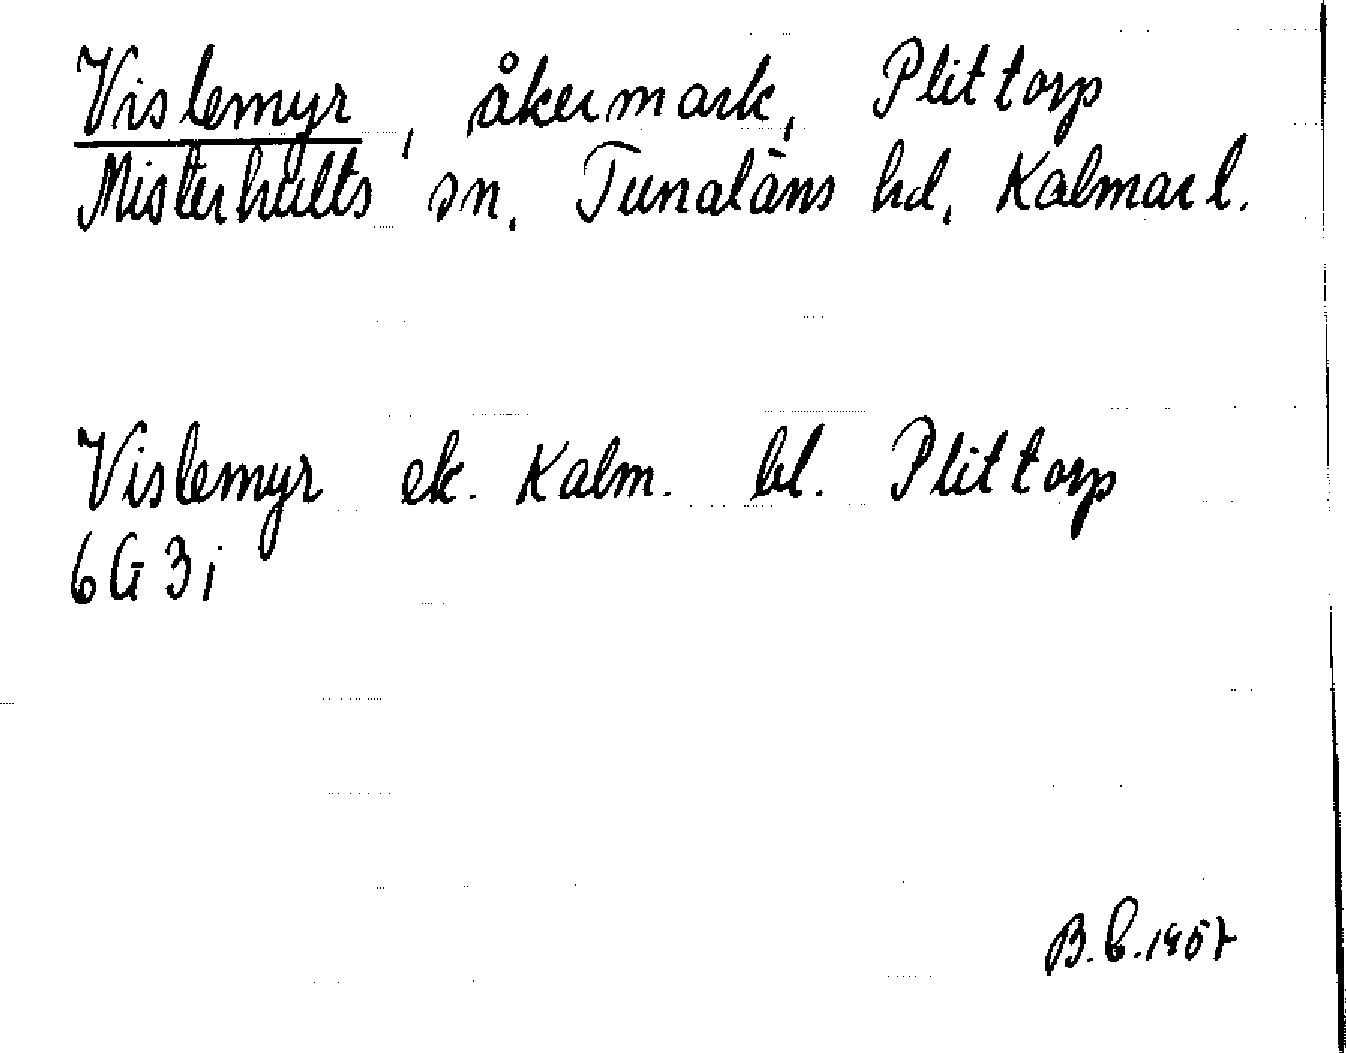 Vislemyr, åkermark, Plittorp
Misterhults sn, Tunaläns hd, Kalmar l.
Vislemyr ek. Kalm. bl. Plittorp
6G3i
B.C. 1957